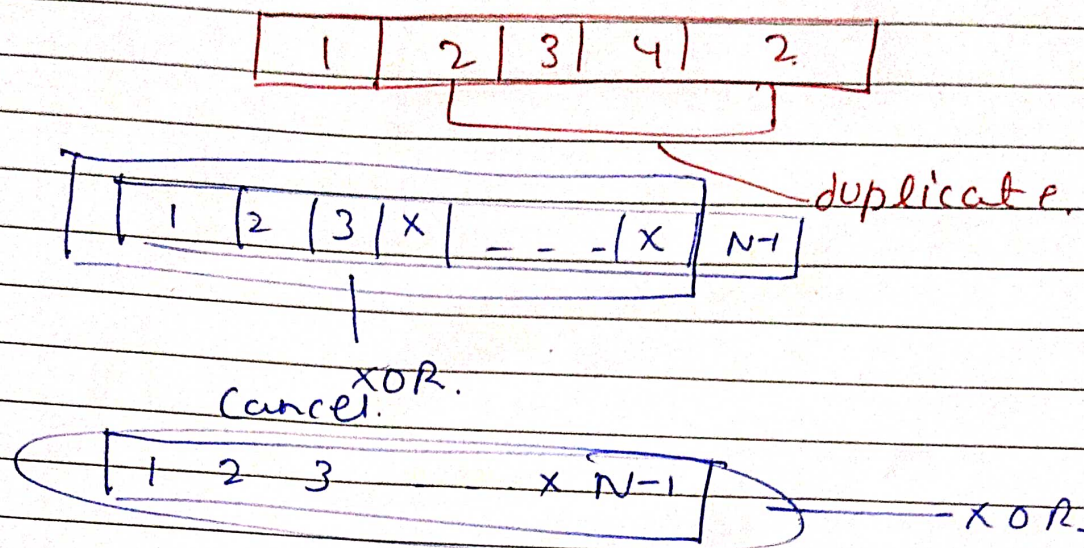 1 | 2 | 3 | 4 | 2
duplicate.
1 | 2 | 3 | X | - - - | X | N-1
XOR.
Cancel.
1 2 3 X N-1
XOR.